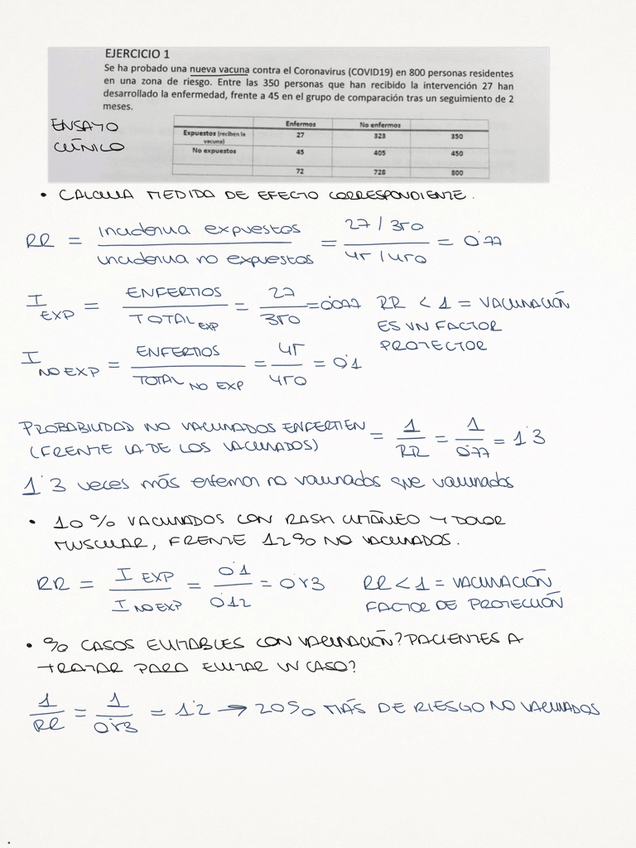 EJERCICIO 1
Se ha probado una nueva vacuna contra el Coronavirus (COVID19) en 800 personas residentes
en una zona de riesgo. Entre las 350 personas que han recibido la intervención 27 han
desarrollado la enfermedad, frente a 45 en el grupo de comparación tras un seguimiento de 2
meses.
ENSAYO
CLÍNICO
Enfermos No enfermos
Expuestos (reciben la vacuna) 27 323 350
No expuestos 45 405 450
72 728 800
• CALCULA MEDIDA DE EFECTO CORRESPONDIENTE.
RR = incidencia expuestos / incidencia no expuestos = 27/350 / 45/450 = 0'77
I EXP = ENFERMOS / TOTAL EXP = 27 / 350 = 0'077 RR < 1 = VACUNACIÓN
ES UN FACTOR
PROTECTOR
I NO EXP = ENFERMOS / TOTAL NO EXP = 45 / 450 = 0'1
PROBABILIDAD NO VACUNADOS ENFERMEN
(FRENTE LA DE LOS VACUNADOS) = 1 / RR = 1 / 0'77 = 1'3
1'3 veces más enferman no vacunados que vacunados
• 10% VACUNADOS CON RASH CUTÁNEO Y DOLOR
MUSCULAR, FRENTE 12% NO VACUNADOS.
RR = I EXP / I NO EXP = 0'1 / 0'12 = 0'83 RR < 1 = VACUNACIÓN
FACTOR DE PROTECCIÓN
• % CASOS EVITABLES CON VACUNACIÓN? PACIENTES A
TRATAR PARA EVITAR UN CASO?
1 / RR = 1 / 0'83 = 1'2 → 20% MÁS DE RIESGO NO VACUNADOS